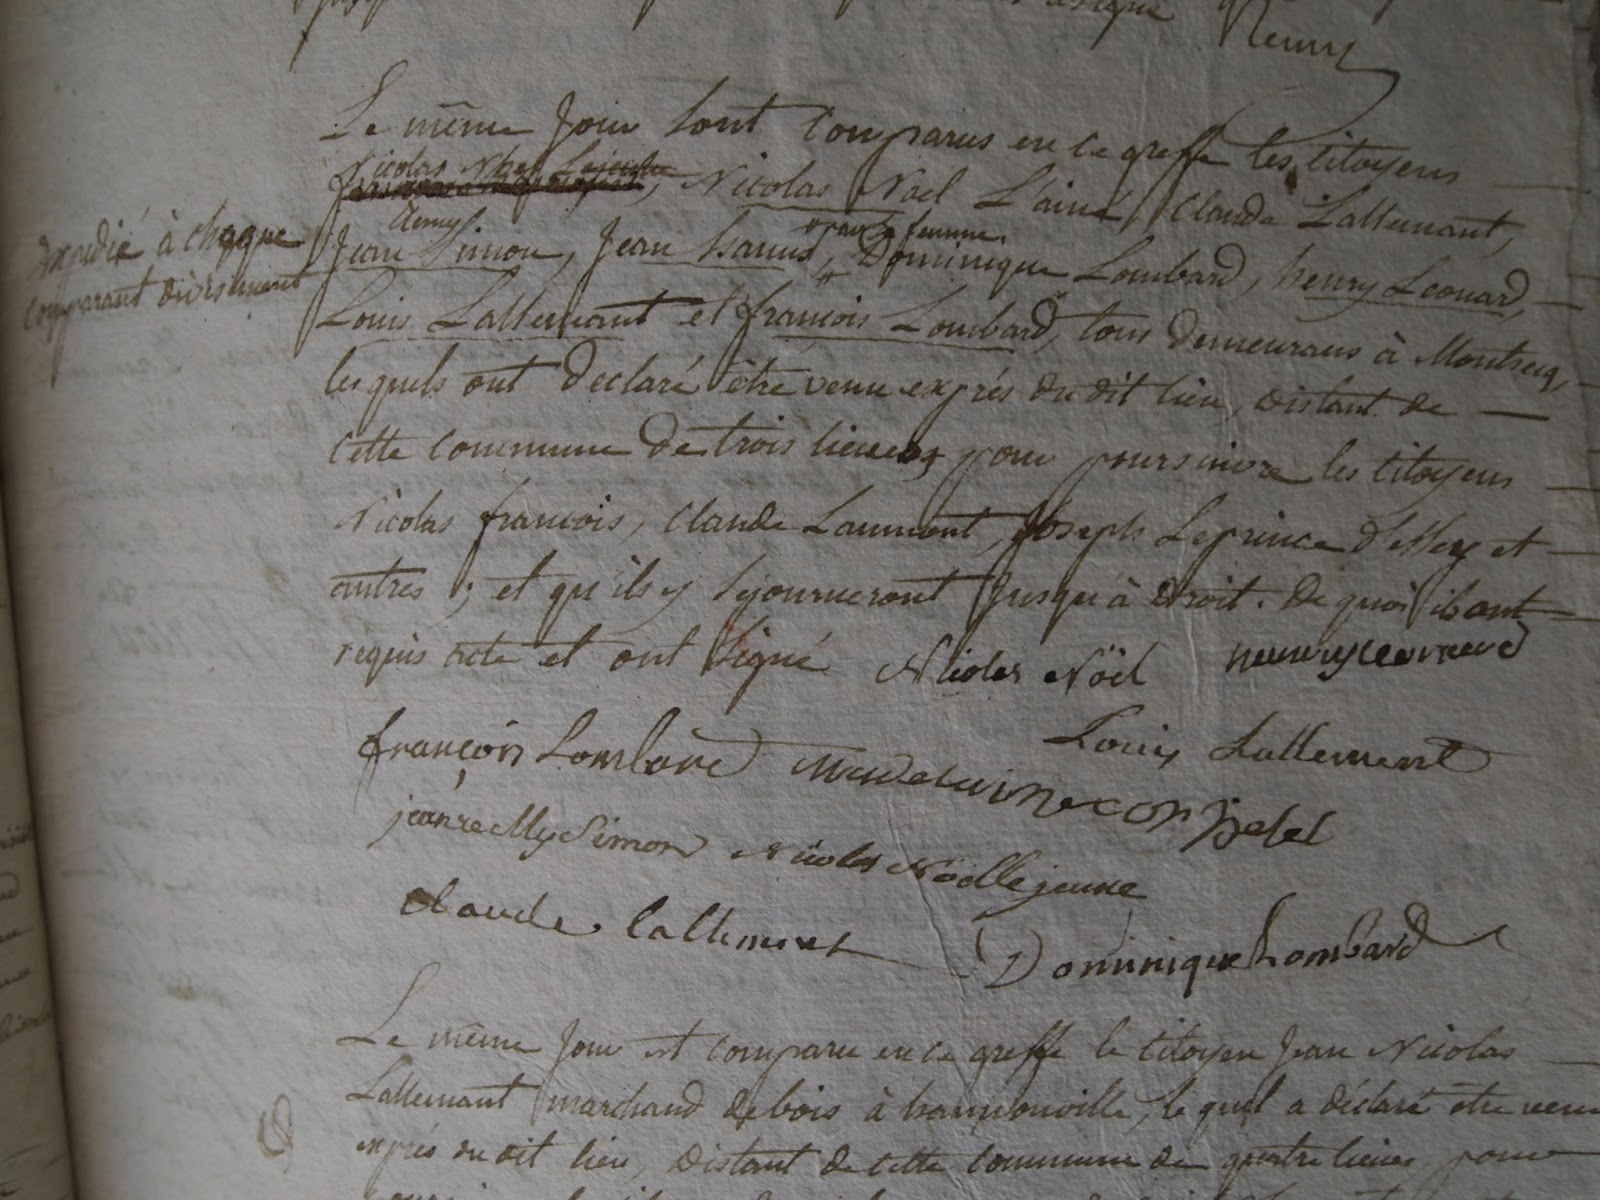 Remy
Le même Jour sont comparus en ce greffe les citoyens
Nicolas Noel Lejeune
Nicolas Noel L'ainé, Claude Lallemant,
Remy
par sa femme.
Jean Simon, Jean hanus, Dominique Lombard, henry Leonard,
expedié à chaque
comparant divisément
Louis Lallemant et françois Lombard, tous demeurans à Montsecq,
lesquels ont declaré être venu exprés du dit lieu, distant de
cette commune de trois lieues, pour poursuivre les citoyens
Nicolas françois, Claude Laumont, Joseph Leprince d'hey et
autres ; et qu'ils y sejourneront Jusqu'à droit. De quoi ils ont
requis acte et ont signé Nicolas Nöel
françois Lombard Louis Lallement
jean remy Simon Nicolas Nöelle jeune
Claude Lallement Dominique Lombard
Le même Jour est comparu en ce greffe le citoyen Jean Nicolas
Lallemant marchand de bois à hannonville, le quel a déclaré être venu
exprés du dit lieu, distant de cette commune de quatre lieues, pour